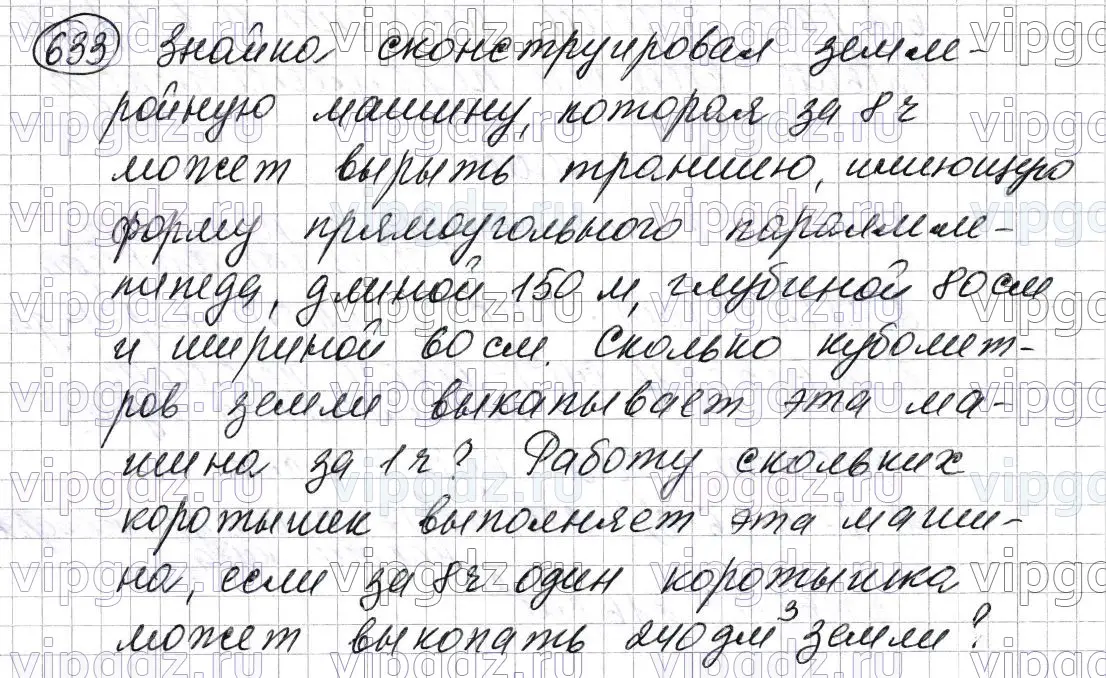 633 Знайка сконструировал земле-
ройную машину, которая за 8ч
может вырыть траншею, имеющую
форму прямоугольного параллеле-
пипеда, длиной 150 м, глубиной 80 см
и шириной 60 см. Сколько кубомет-
ров земли выкапывает эта ма-
шина за 1ч? Работу скольких
коротышек выполняет эта маши-
на, если за 8ч один коротышка
может выкопать 240 дм³ земли?
vipgdz.ru